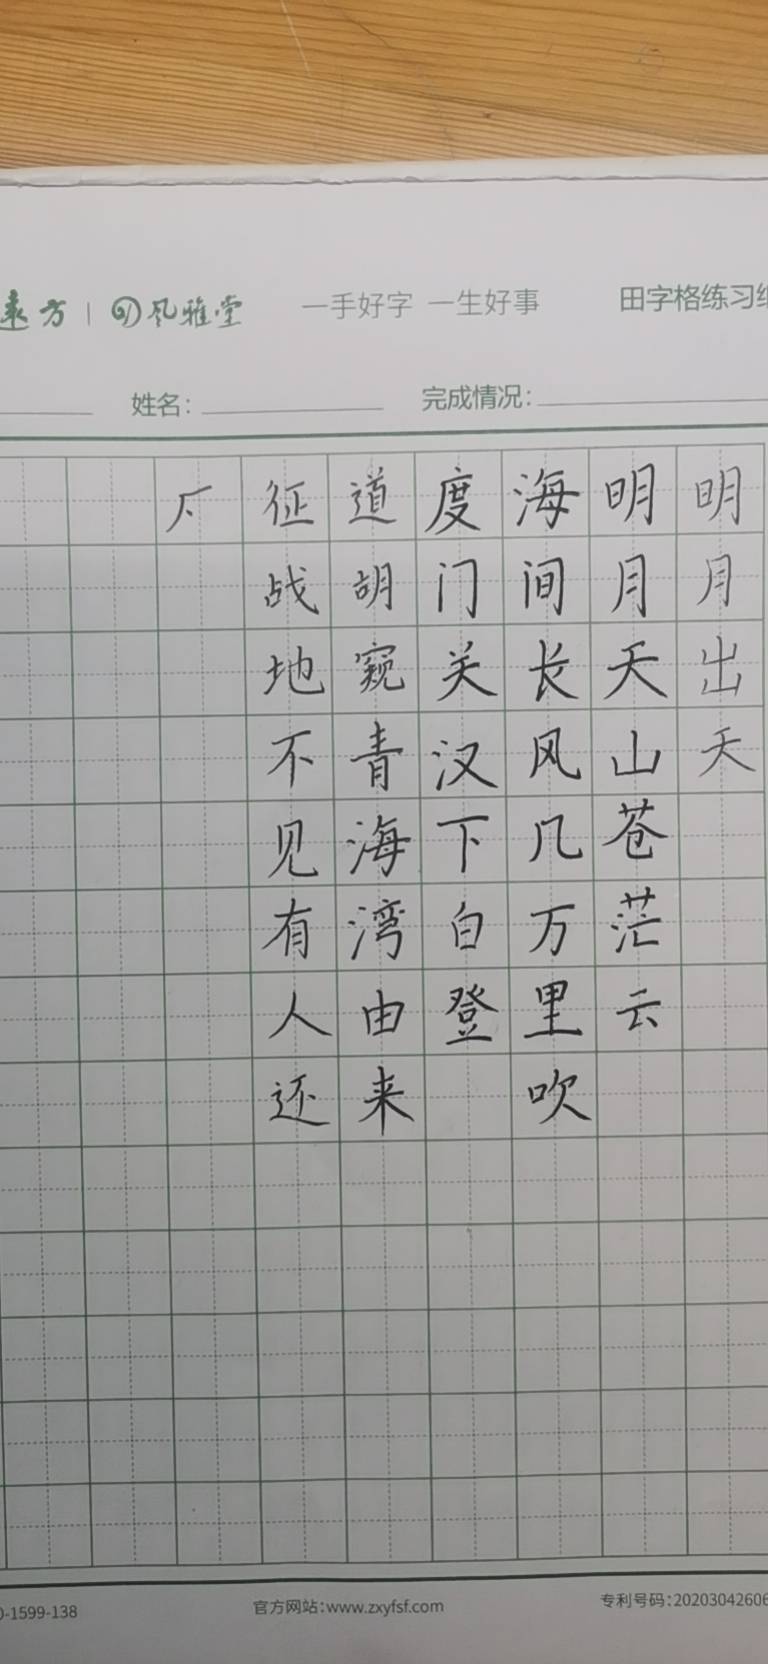 遠方 | 风雅堂 一手好字 一生好事 田字格练习纸
姓名： 完成情况：
明月出天
明月天山苍茫云
海间长风几万里吹
度门关汉下白登
道胡窥青海湾由来
征战地不见有人还
0-1599-138 官方网站：www.zxyfsf.com 专利号码：20203042606